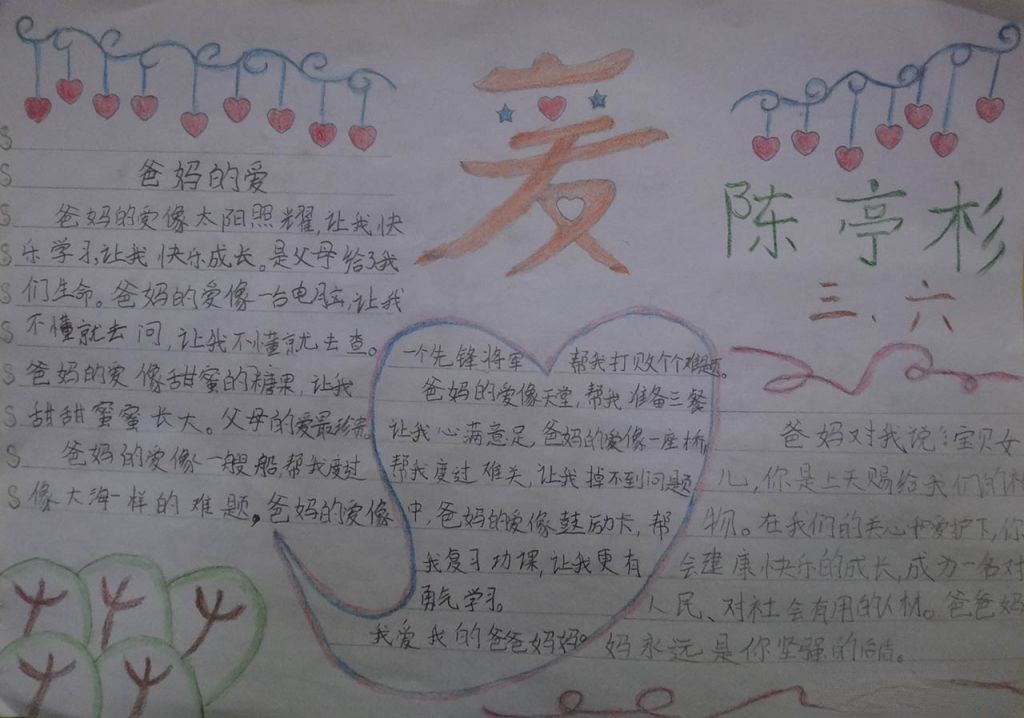 爱
陈亭杉
三、六
爸妈的爱
爸妈的爱像太阳照耀,让我快
乐学习,让我快乐成长。是父母给了我
们生命。爸妈的爱像一台电脑,让我
不懂就去问,让我不懂就去查。
爸妈的爱像甜蜜的糖果,让我
甜甜蜜蜜长大。父母的爱最珍贵
爸妈的爱像一艘船,帮我度过
像大海一样的难题。爸妈的爱像
一个先锋将军 帮我打败个个难题。
爸妈的爱像天堂,帮我准备三餐
让我心满意足,爸妈的爱像一座桥,
帮我度过难关,让我掉不到问题
中,爸妈的爱像鼓励卡,帮
我复习功课,让我更有
勇气学习。
我爱我的爸爸妈妈。
爸妈对我说:宝贝女
儿,你是上天赐给我们的礼
物。在我们的关心和爱护下,你
会建康快乐的成长,成为一名对
人民、对社会有用的人材。爸爸妈
妈永远是你坚强的后盾。